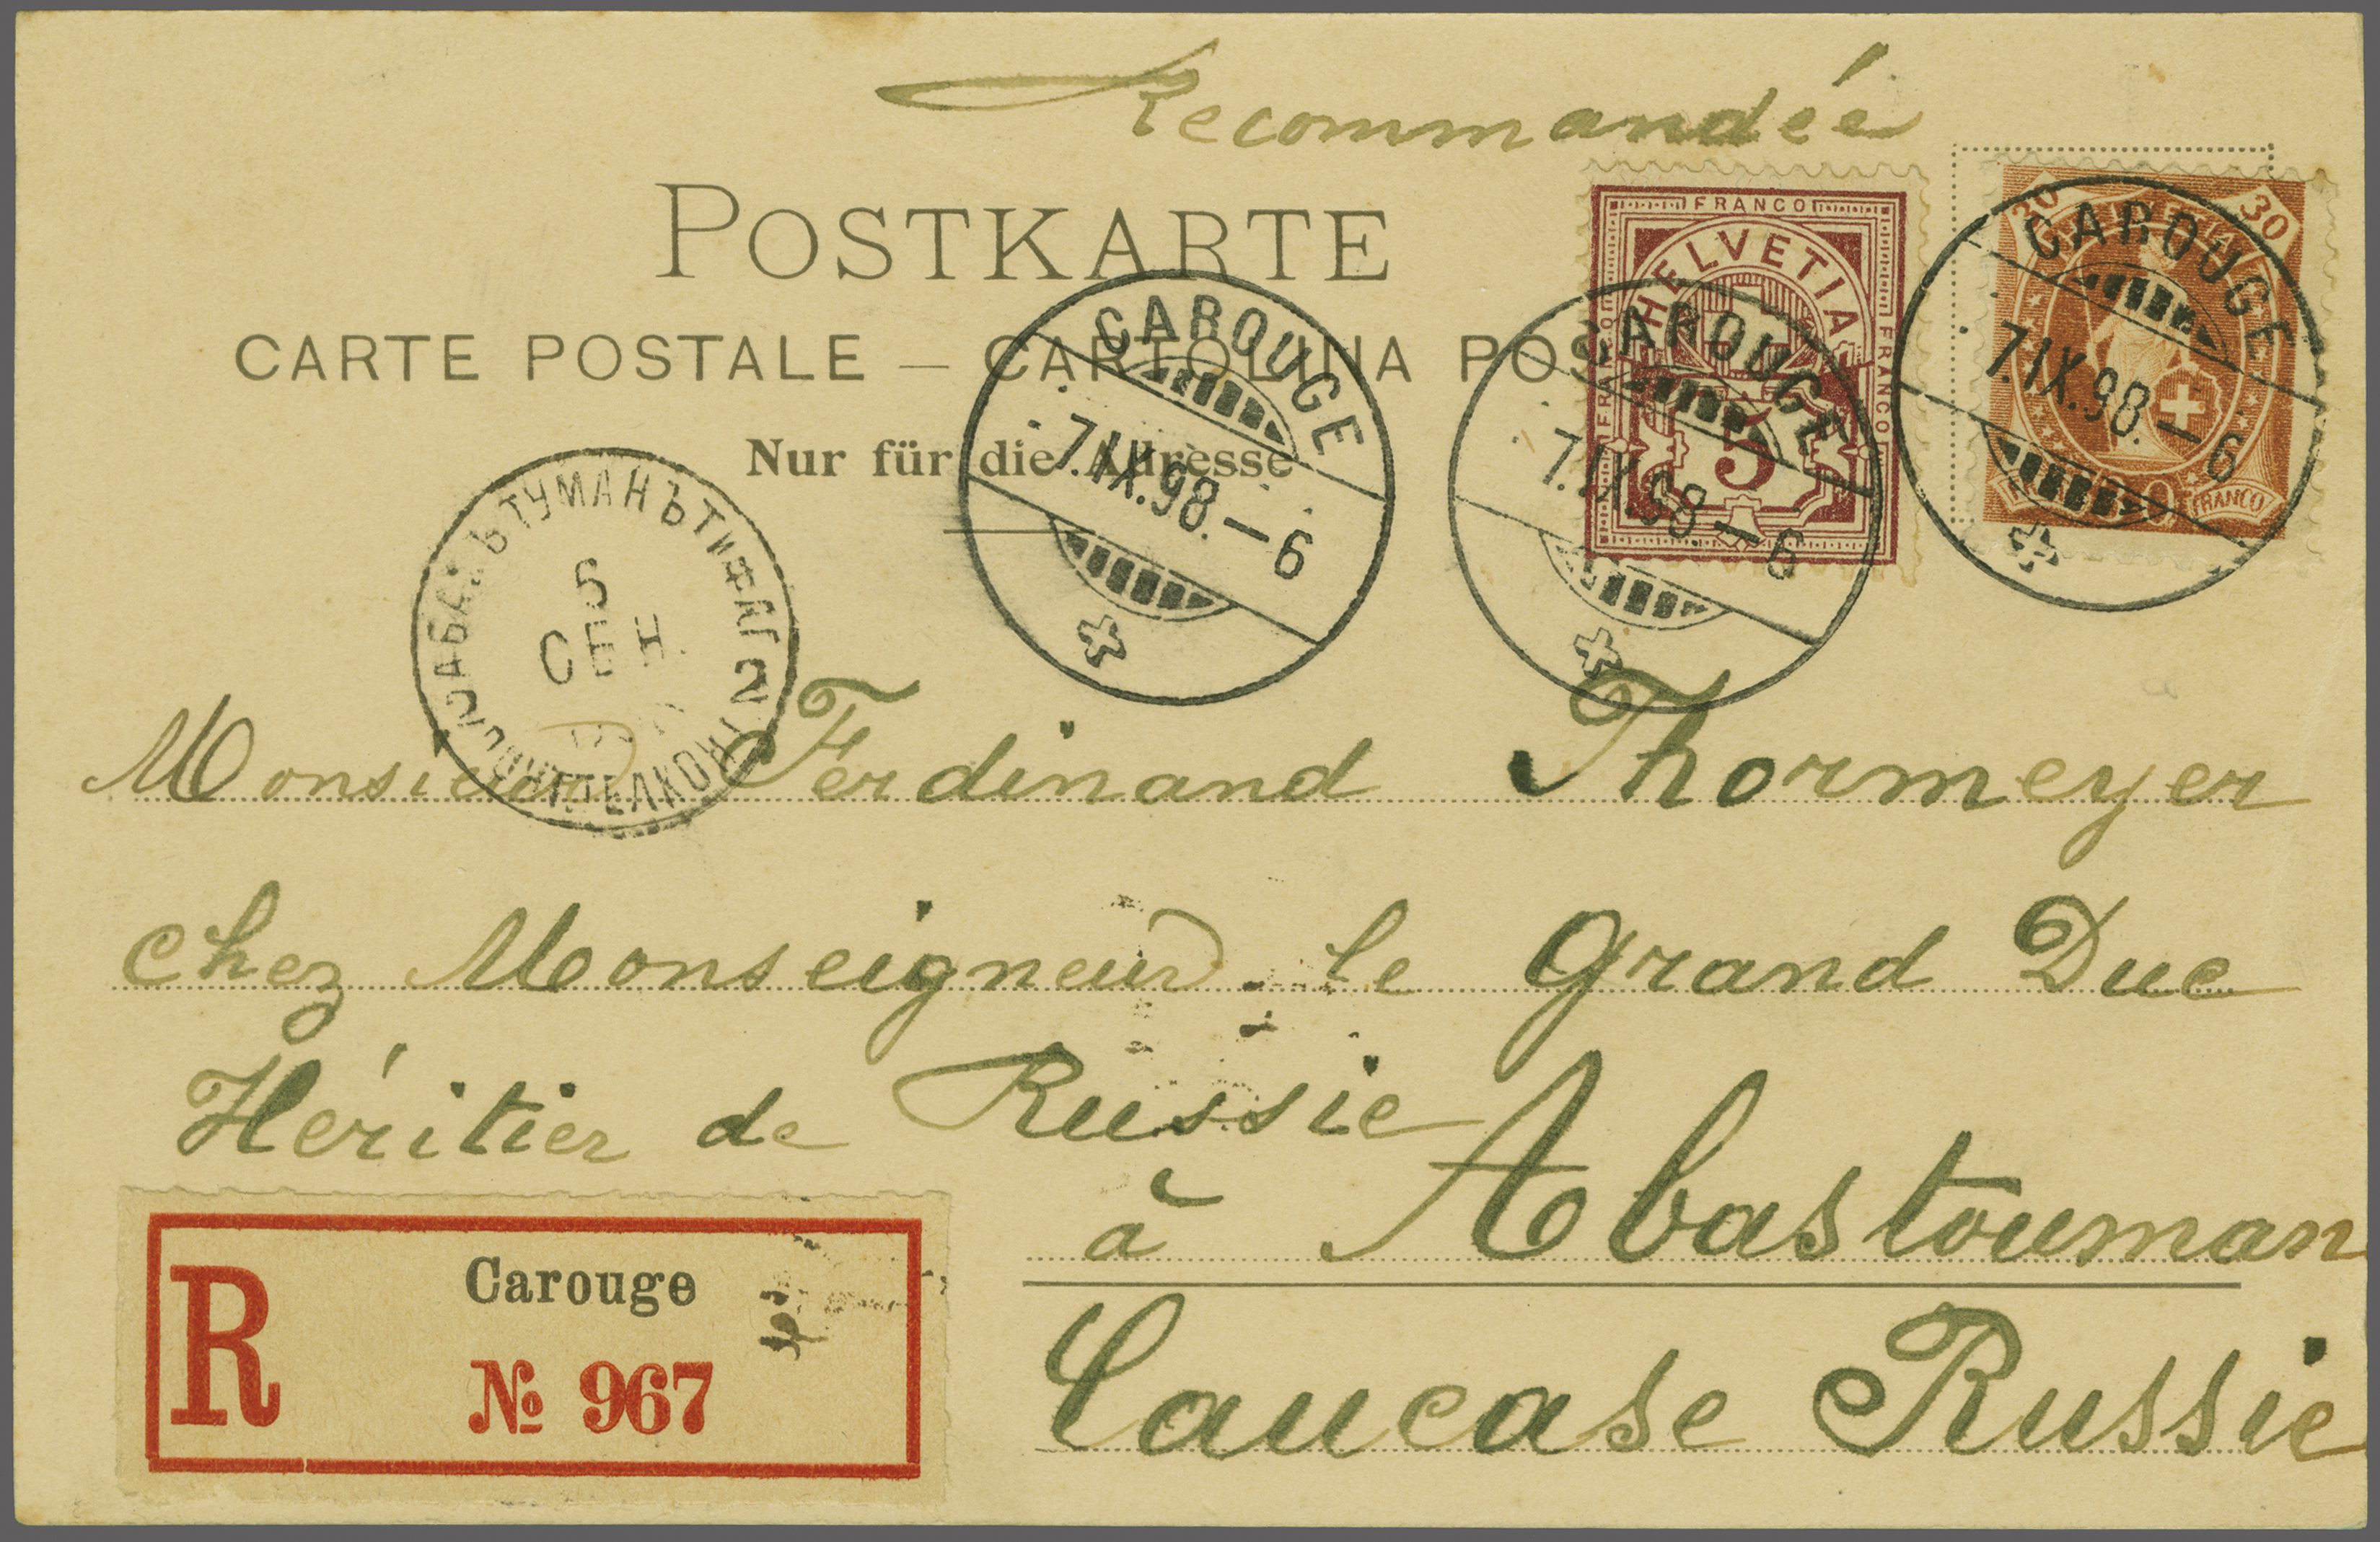 Recommandée
POSTKARTE
CARTE POSTALE — CARTOLINA POS
Nur für die Adresse
FRANCO
HELVETIA
FRANCO
FRANCO
5
30
HELVETIA
30
FRANCO
CAROUGE
7.IX.98.–6
CAROUGE
7.IX.98.–6
CAROUGE
7.IX.98.–6
ТУМАНЪ ТИФЛ
5
СЕН.
2
Monsieur Ferdinand Thormeyer
chez Monseigneur le Grand Duc
Héritier de Russie
à Abastouman
Caucase Russie
R
Carouge
№ 967